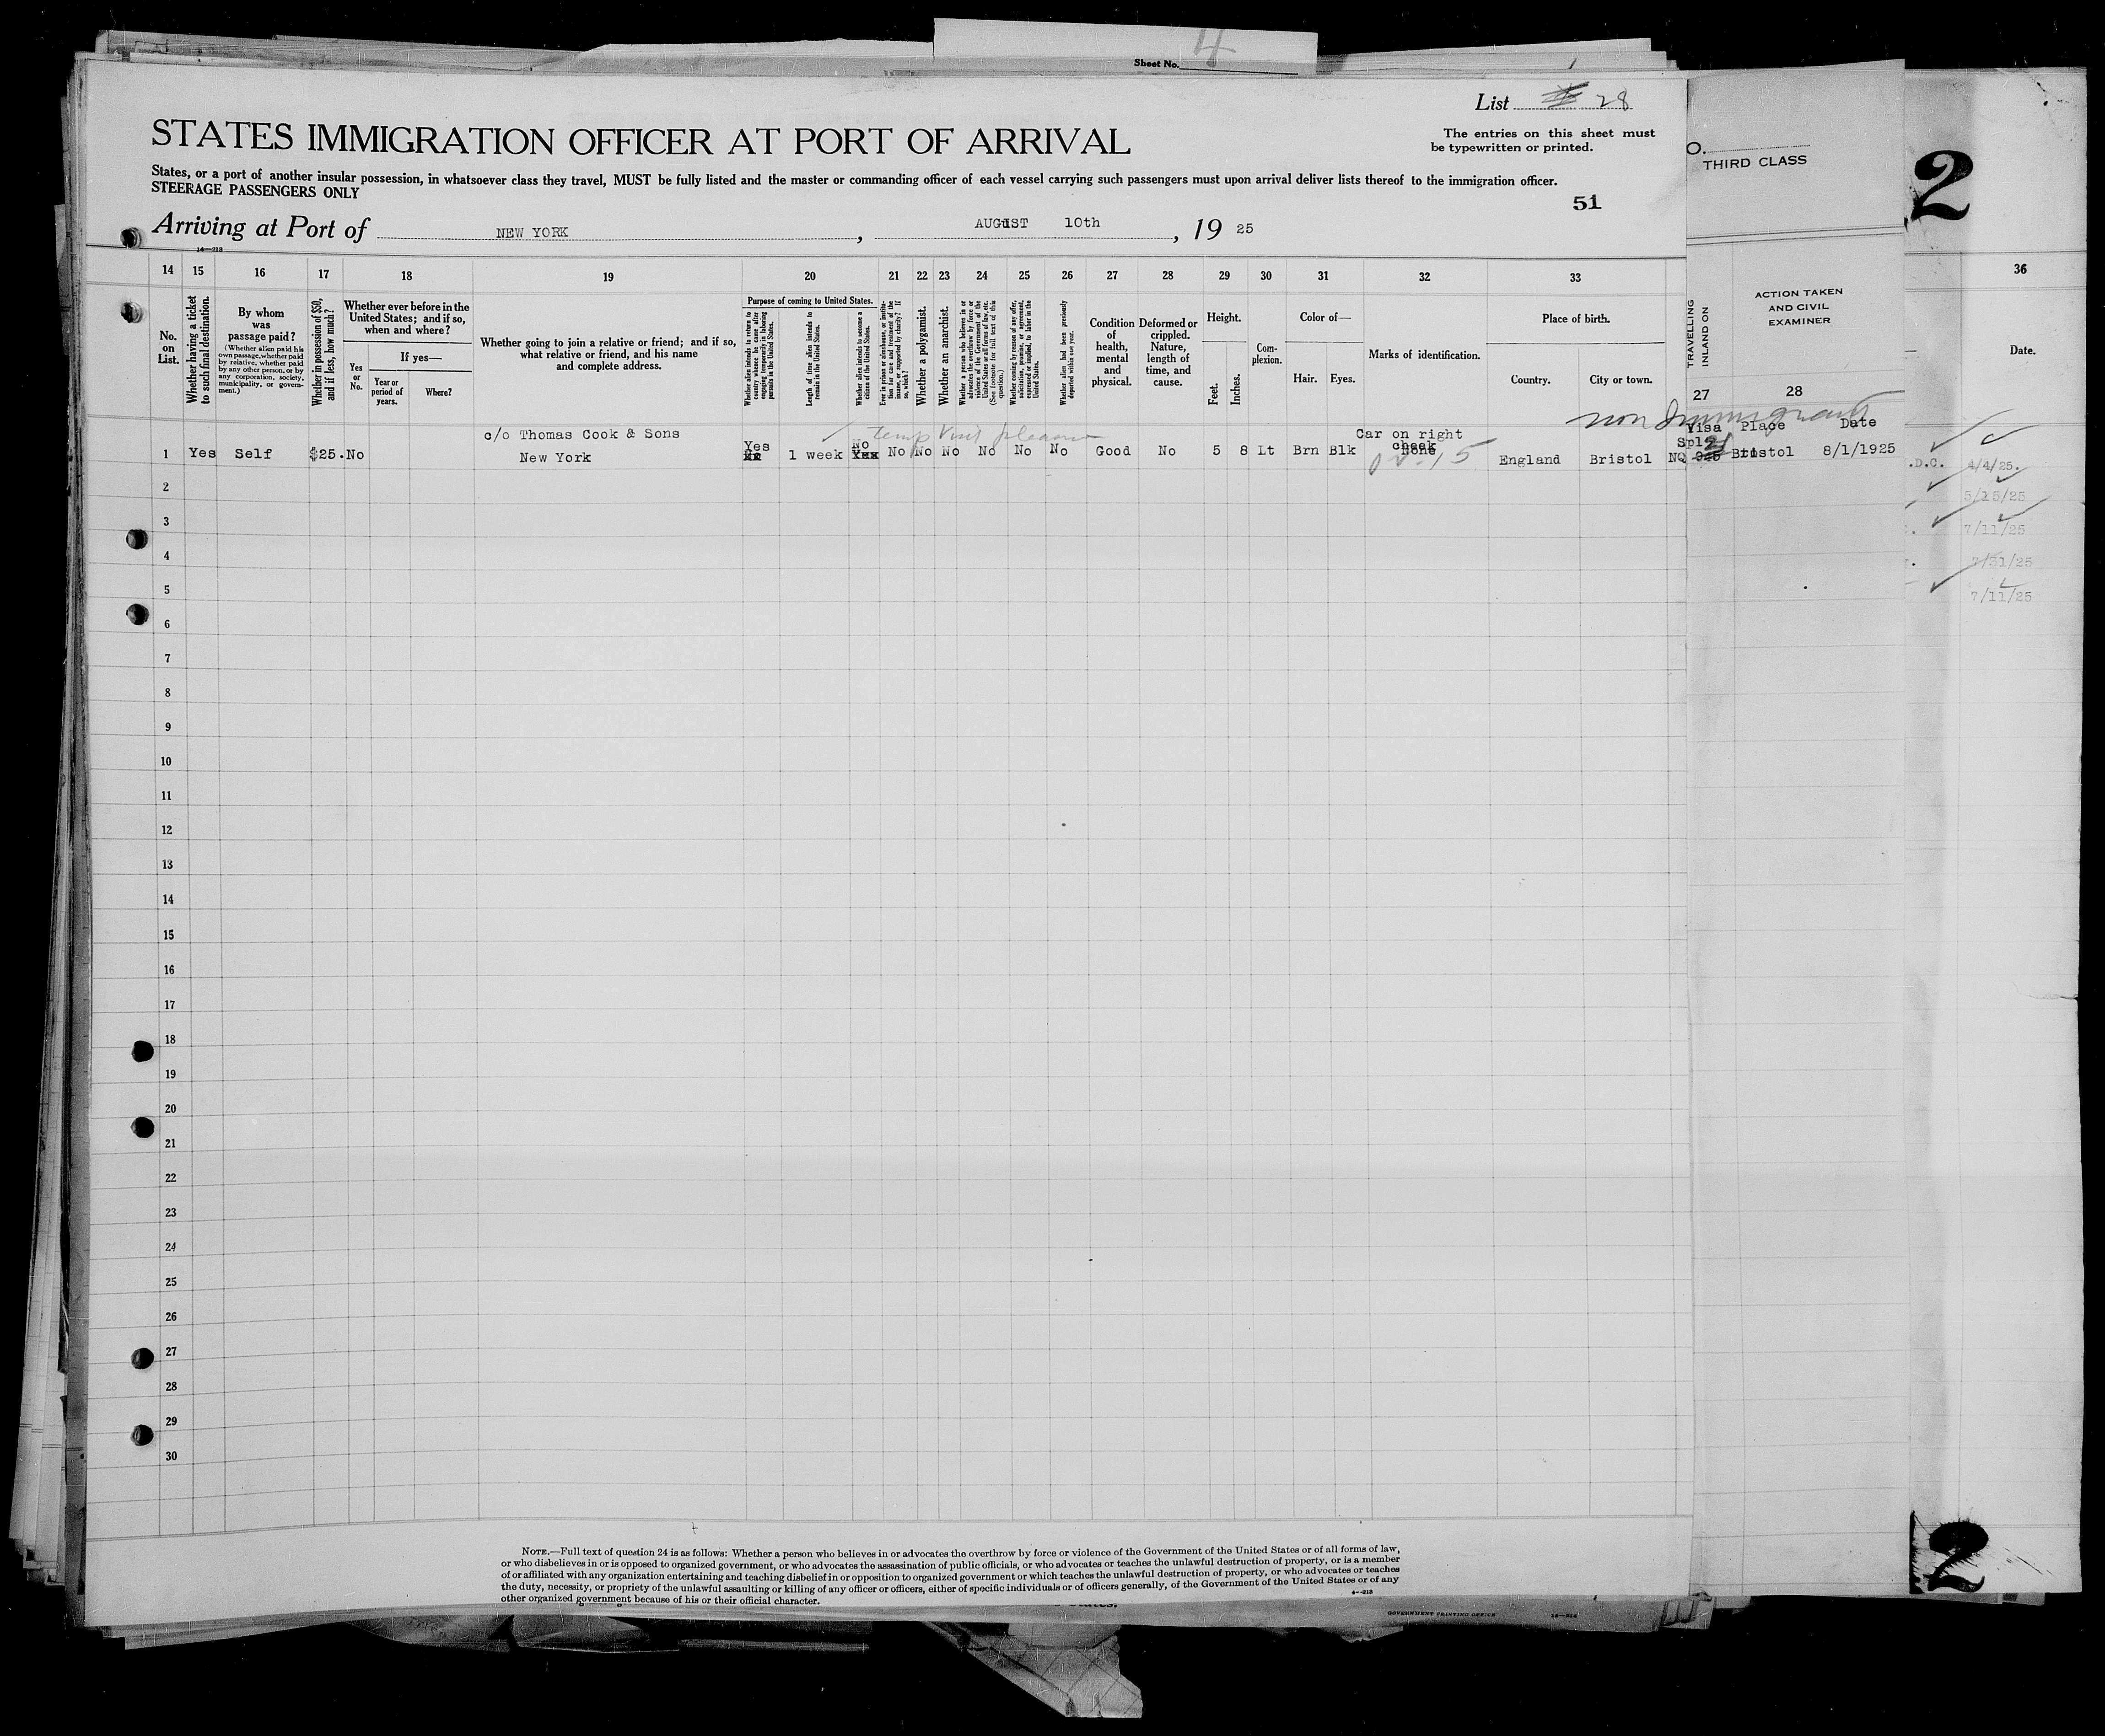 4
Sheet No.
List 28
STATES IMMIGRATION OFFICER AT PORT OF ARRIVAL
The entries on this sheet must
be typewritten or printed.
States, or a port of another insular possession, in whatsoever class they travel, MUST be fully listed and the master or commanding officer of each vessel carrying such passengers must upon arrival deliver lists thereof to the immigration officer.
STEERAGE PASSENGERS ONLY
51
Arriving at Port of NEW YORK, AUGUST 10th, 19 25
14—213
O.
THIRD CLASS
2
14 15 16 17 18 19 20 21 22 23 24 25 26 27 28 29 30 31 32 33
36
No. on List.
Whether having a ticket to such final destination.
By whom was passage paid?
(Whether alien paid his own passage, whether paid by relative, whether paid by any other person, or by any corporation, society, municipality, or government.)
Whether in possession of $50, and if less, how much?
Whether ever before in the United States; and if so, when and where?
Yes or No.
If yes—
Year or period of years.
Where?
Whether going to join a relative or friend; and if so, what relative or friend, and his name and complete address.
Purpose of coming to United States.
Whether alien intends to return to country whence he came after engaging temporarily in laboring pursuits in the United States.
Length of time alien intends to remain in the United States.
Whether alien intends to become a citizen of the United States.
Ever in prison or almshouse, or institution for care and treatment of the insane, or supported by charity? If so, which?
Whether a polygamist.
Whether an anarchist.
Whether a person who believes in or advocates the overthrow by force or violence of the Government of the United States or all forms of law, etc. (See footnote for full text of this question.)
Whether coming by reason of any offer, solicitation, promise, or agreement, expressed or implied, to labor in the United States.
Whether alien had been previously deported within one year.
Condition of health, mental and physical.
Deformed or crippled. Nature, length of time, and cause.
Height.
Feet.
Inches.
Complexion.
Color of—
Hair.
Eyes.
Marks of identification.
Place of birth.
Country.
City or town.
TRAVELLING
INLAND ON
27
ACTION TAKEN
AND CIVIL
EXAMINER
28
Date.
non Immigrant
c/o Thomas Cook & Sons
temp visit pleasure
Car on right
cheek
Visa Place Date
1 Yes Self $25. No New York Yes 1 week No No No No No No No Good No 5 8 Lt Brn Blk None England Bristol NQ Bristol 8/1/1925
Spl
.D.C. 4/4/25.
5/15/25
7/11/25
7/31/25
7/11/25
2
3
4
5
6
7
8
9
10
11
12
13
14
15
16
17
18
19
20
21
22
23
24
25
26
27
28
29
30
NOTE.—Full text of question 24 is as follows: Whether a person who believes in or advocates the overthrow by force or violence of the Government of the United States or of all forms of law,
or who disbelieves in or is opposed to organized government, or who advocates the assassination of public officials, or who advocates or teaches the unlawful destruction of property, or is a member
of or affiliated with any organization entertaining and teaching disbelief in or opposition to organized government or which teaches the unlawful destruction of property, or who advocates or teaches
the duty, necessity, or propriety of the unlawful assaulting or killing of any officer or officers, either of specific individuals or of officers generally, of the Government of the United States or of any
other organized government because of his or their official character.
4—213
GOVERNMENT PRINTING OFFICE 14—214
2